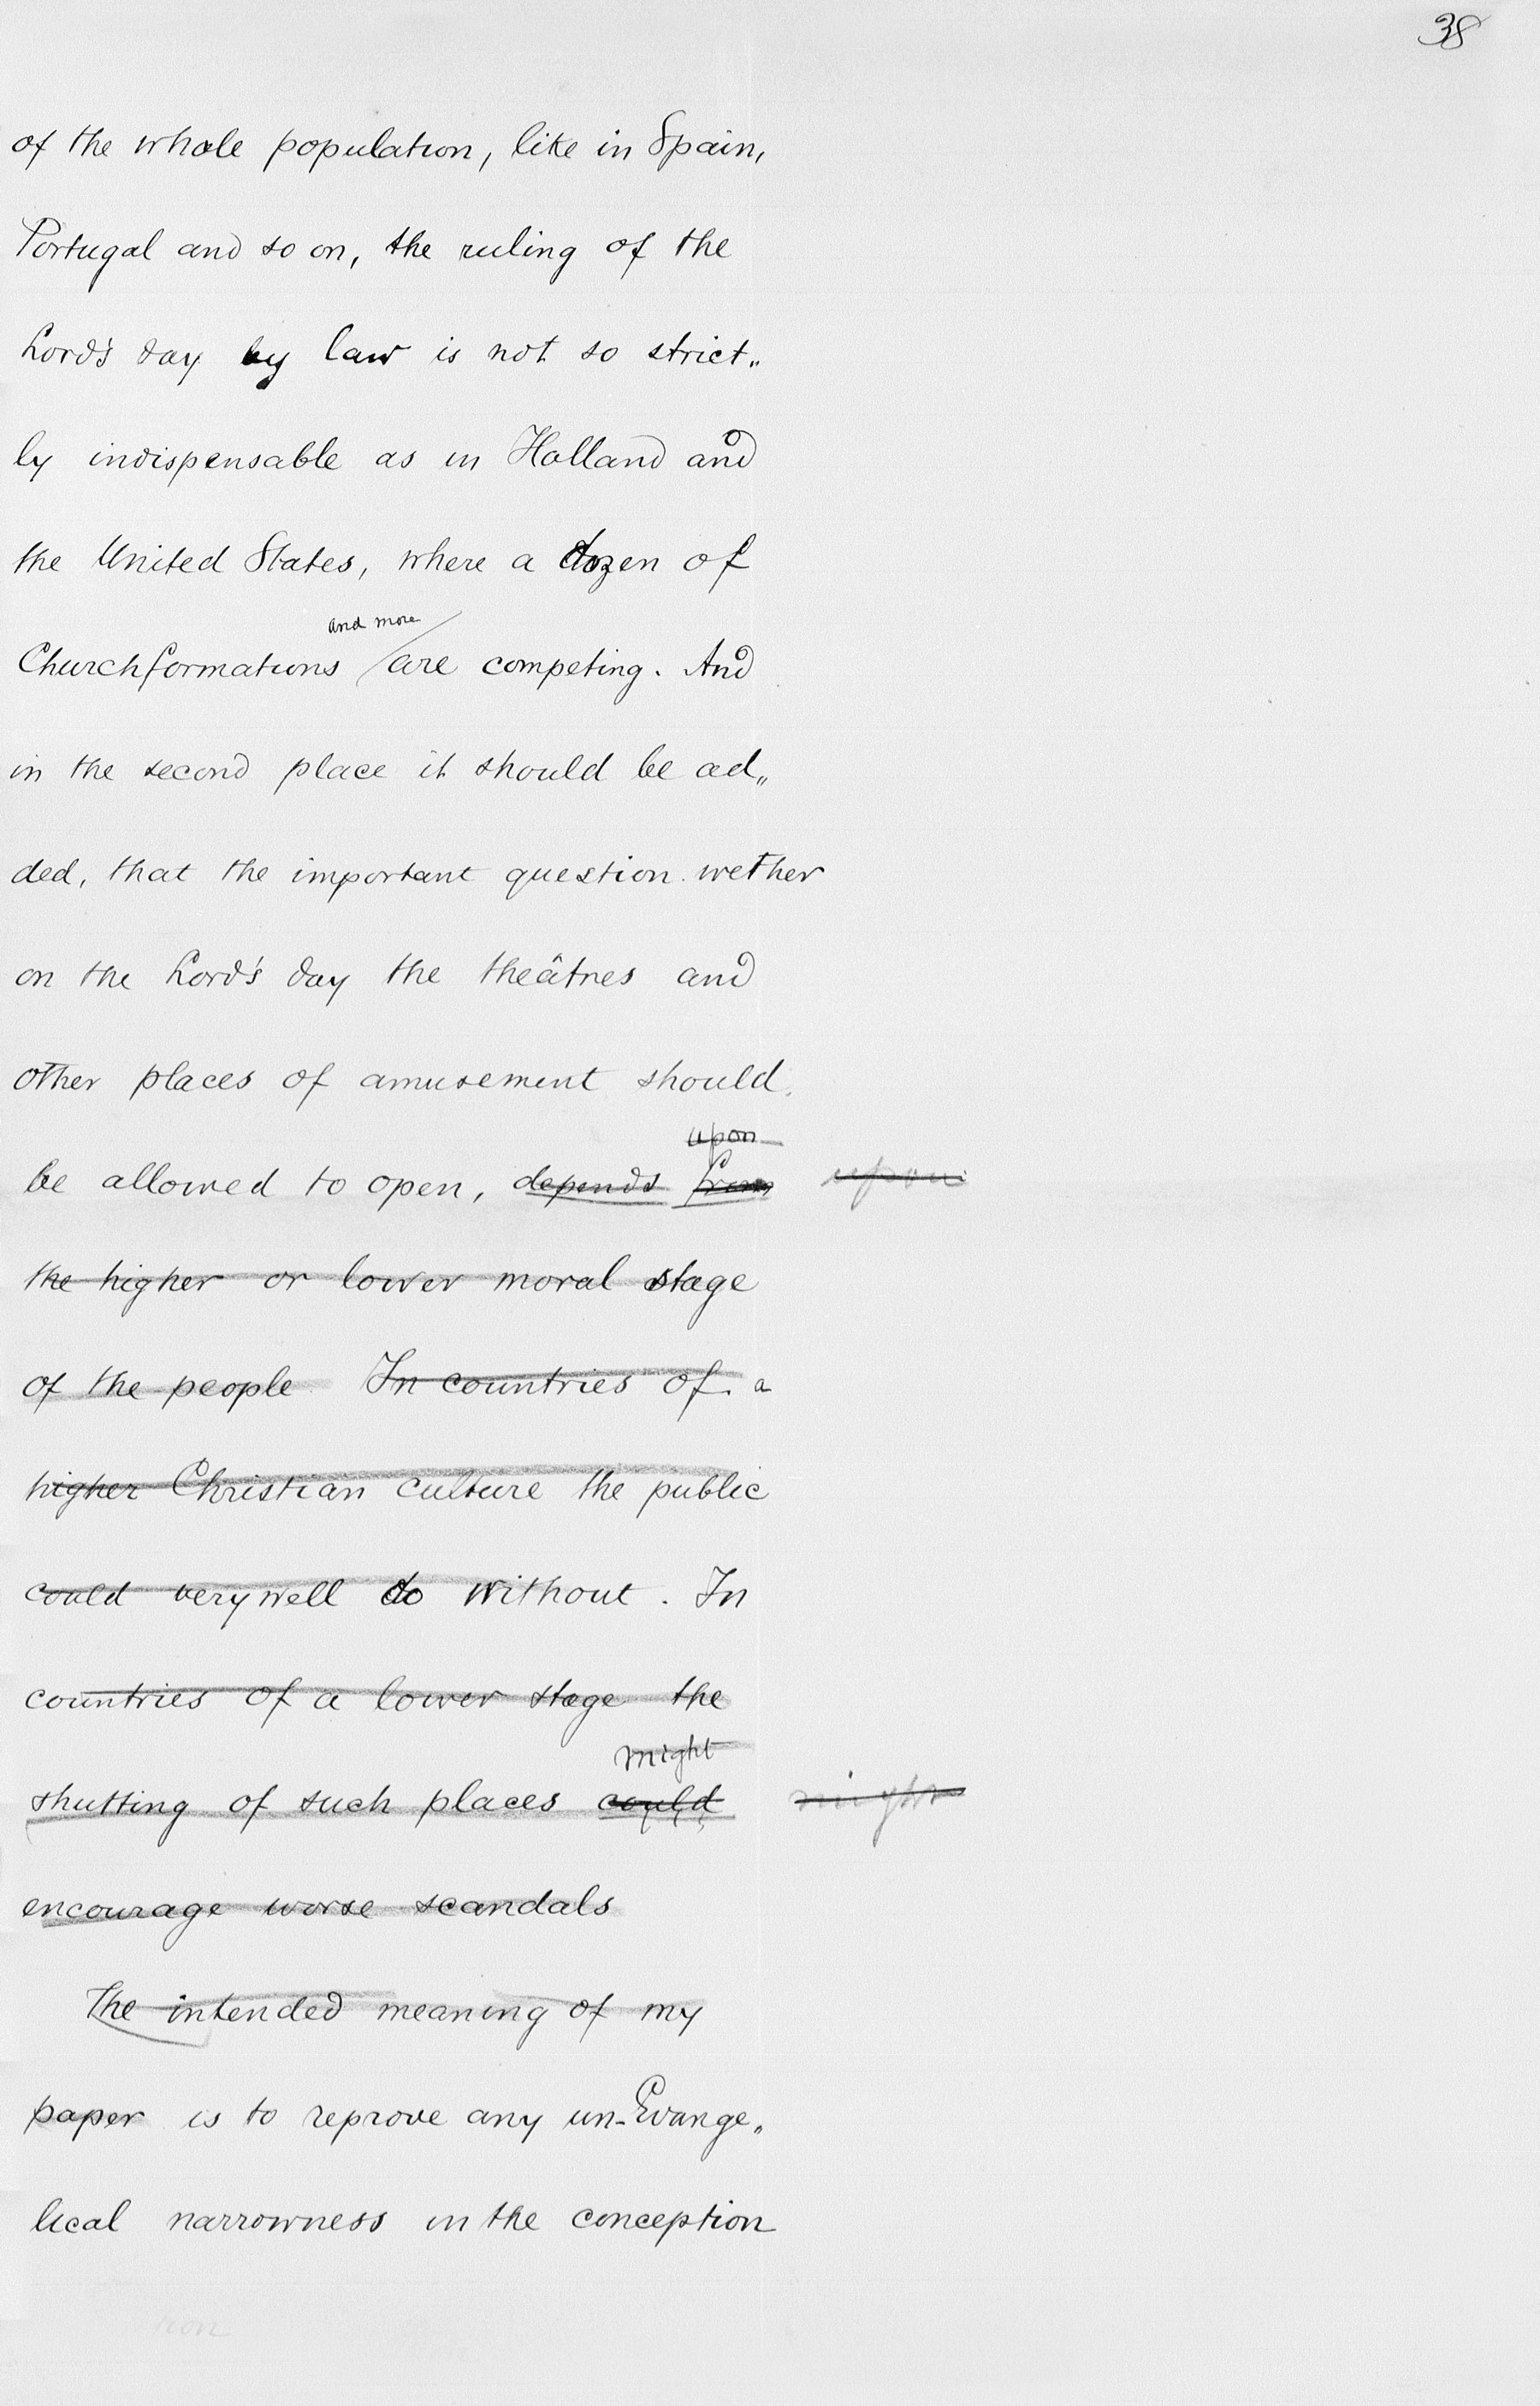 38
of the whole population, like in Spain,
Portugal and so on, the ruling of the
Lord's day by law is not so strict„
ly indispensable as in Holland and
the United States, where a dozen of
and more
Churchformations are competing. And
in the second place it should be ad„
ded, that the important question wether
on the Lord's day the theâtres and
other places of amusement should
upon
be allowed to open, depends from upon
the higher or lower moral stage
of the people. In countries of a
higher Christian culture the public
could very well do without. In
countries of a lower stage the
might
shutting of such places could might
encourage worse scandals
The intended meaning of my
paper is to reprove any un-Evange„
lical narrowness in the conception